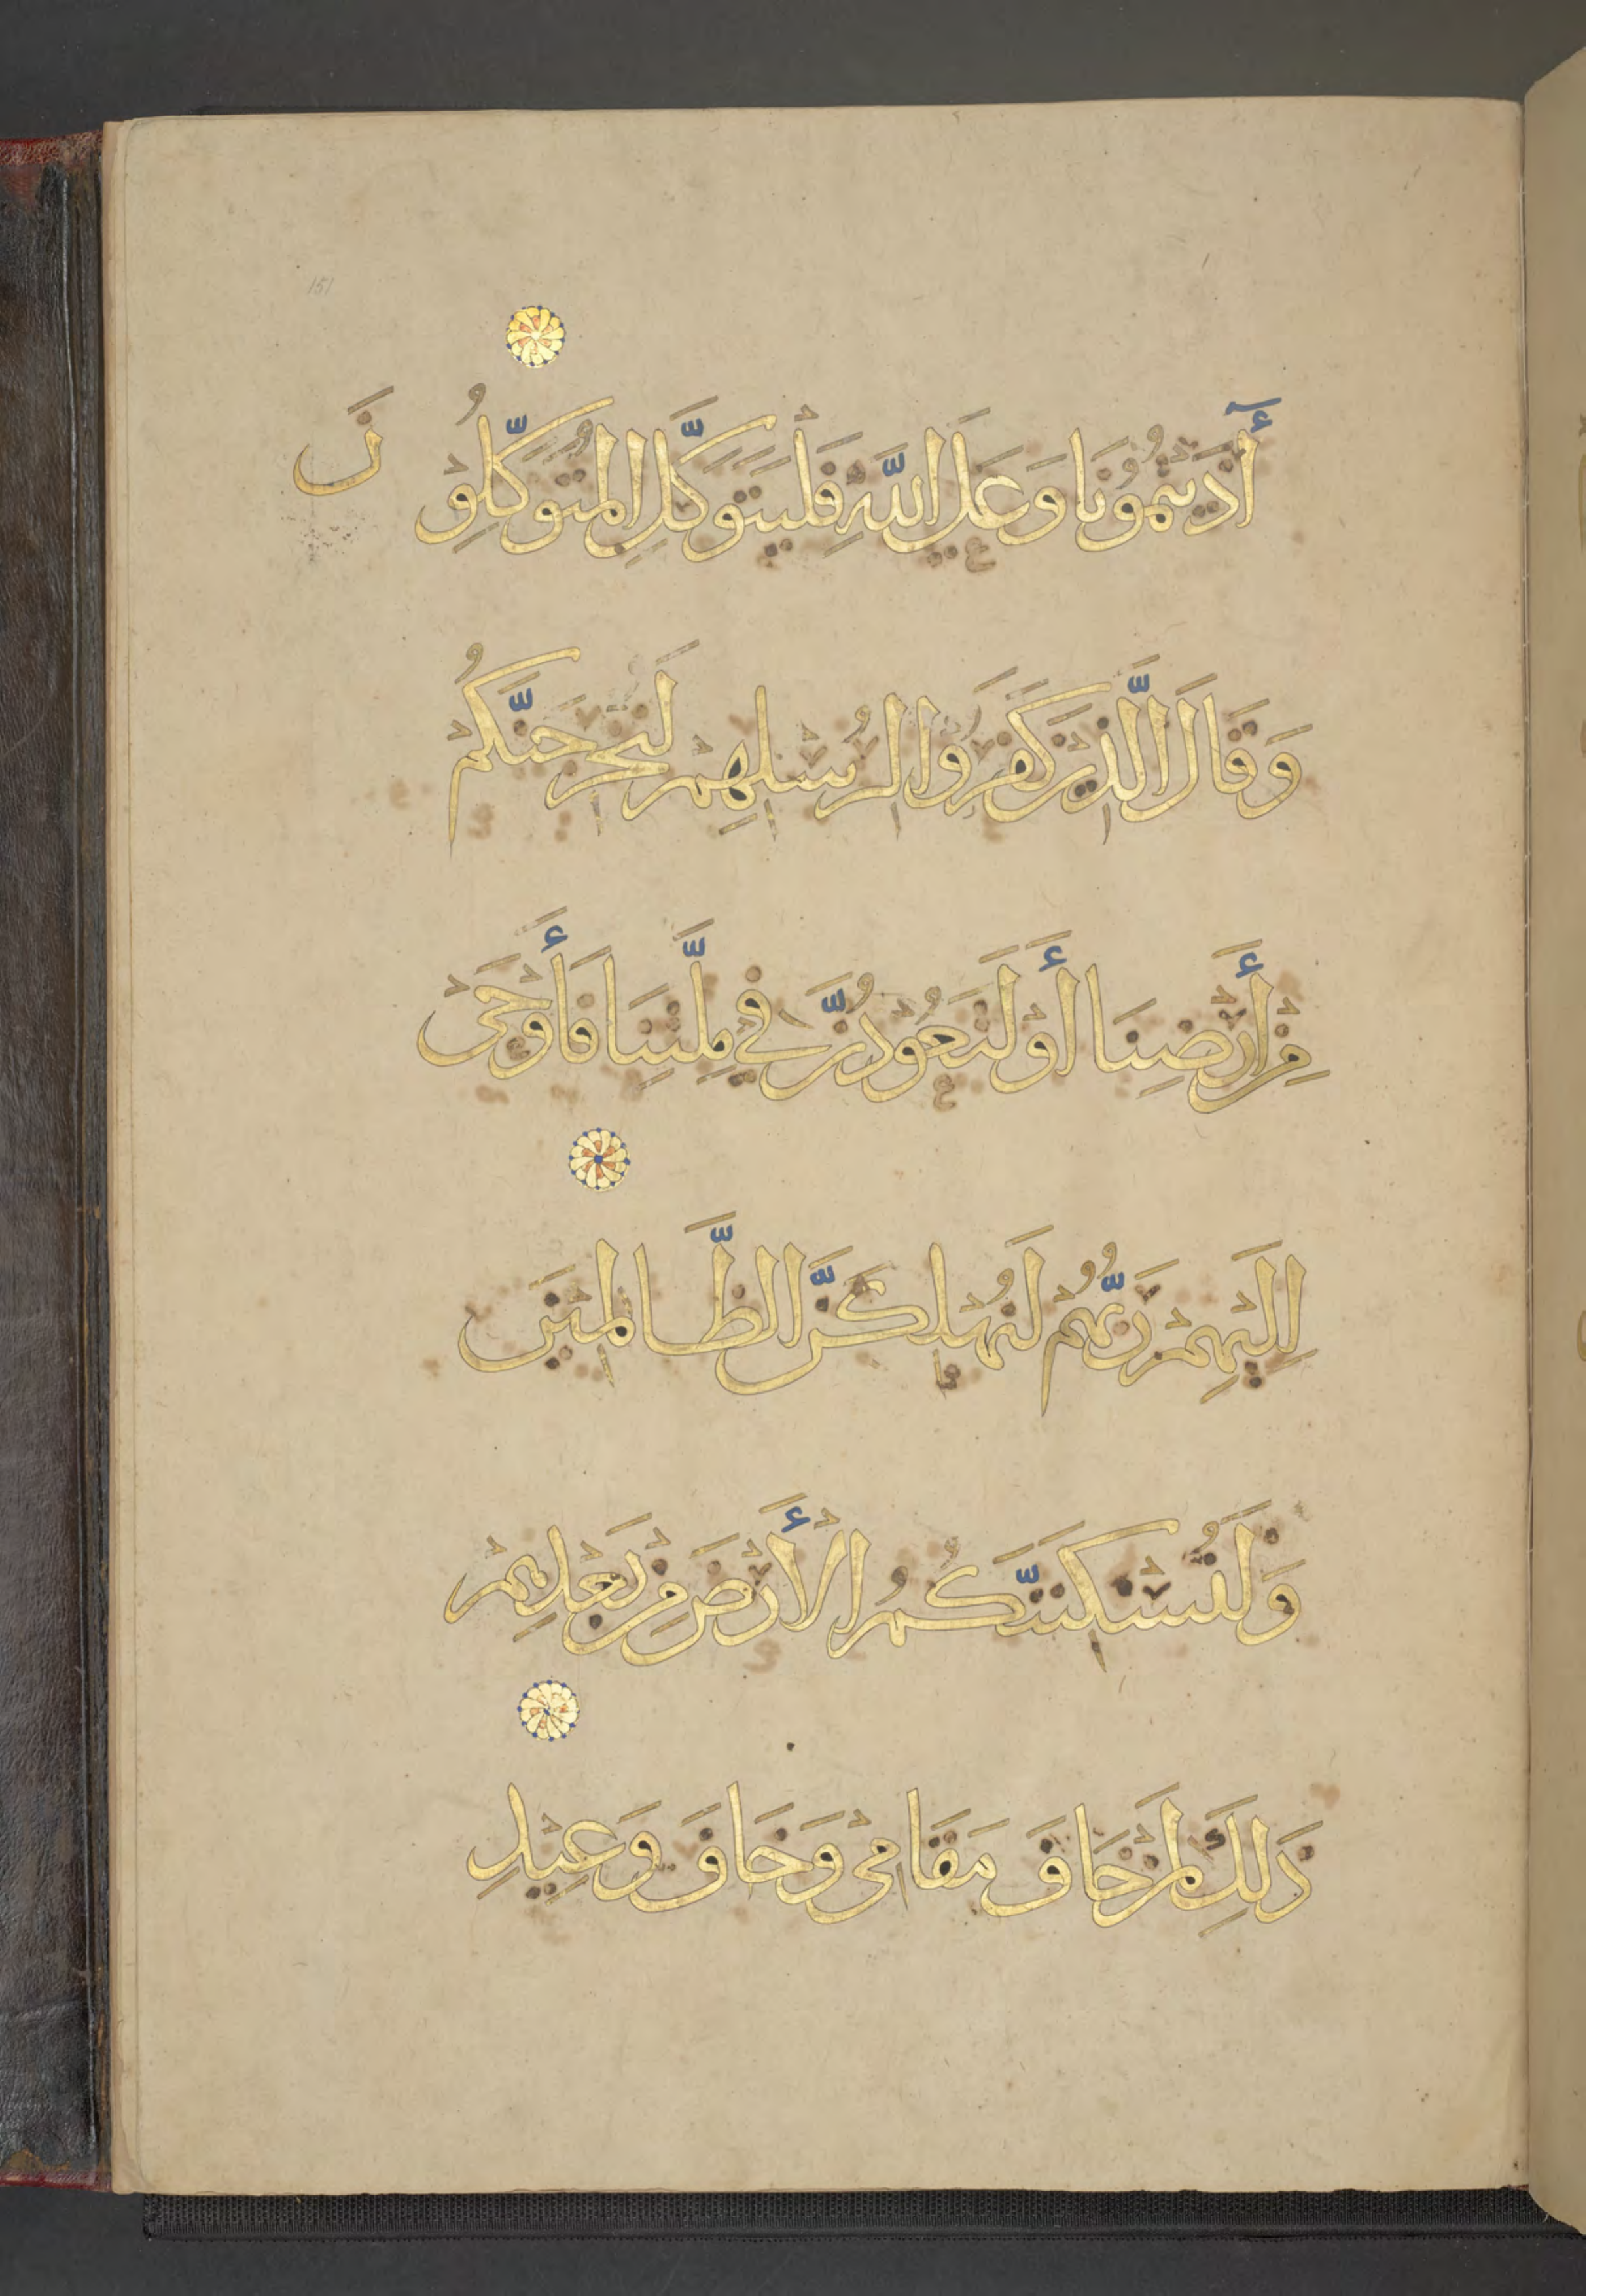 151
أٓذَيْتُمُونَا وَعَلَى اللَّهِ فَلْيَتَوَكَّلِ الْمُتَوَكِّلُوْنَ
وَقَالَ الَّذِيْنَ كَفَرُوا لِرُسُلِهِمْ لَنُخْرِجَنَّكُمْ
مِنْ أَرْضِنَا أَوْ لَتَعُوْدُنَّ فِي مِلَّتِنَا فَأَوْحَىْ
اِلَيْهِمْ رَبُّهُمْ لَنُهْلِكَنَّ الظَّالِمِيْنَ
وَلَنُسْكِنَنَّكُمُ الْأَرْضَ مِنْ بَعْدِهِمْ
ذَلِكَ لِمَنْ خَافَ مَقَامِيْ وَخَافَ وَعِيْدِ